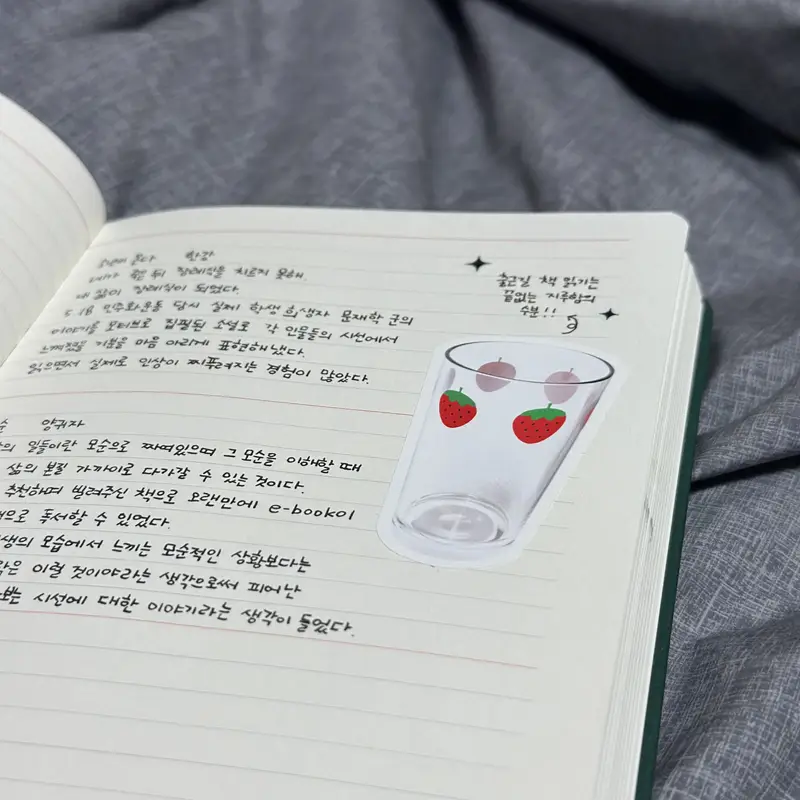 소년이 온다 한강
네가 죽은 뒤 장례식을 치르지 못해,
내 삶이 장례식이 되었다.
5.18 민주화운동 당시 실제 학생 희생자 문재학 군의
이야기를 모티브로 집필된 소설로 각 인물들의 시선에서
느껴졌을 기분을 마음 아리게 표현해냈다.
읽으면서 실제로 인상이 찌푸려지는 경험이 많았다.
출근길 책 읽기는
끝없는 지루함의
수분!!
순 양귀자
의 일들이란 모순으로 짜여있으며 그 모순을 이해할 때
삶의 본질 가까이로 다가갈 수 있는 것이다.
추천하며 빌려주신 책으로 오랜만에 e-book이
으로 독서할 수 있었다.
생의 모습에서 느끼는 모순적인 상황보다는
은 이럴 것이야라는 생각으로써 피어난
보는 시선에 대한 이야기라는 생각이 들었다.